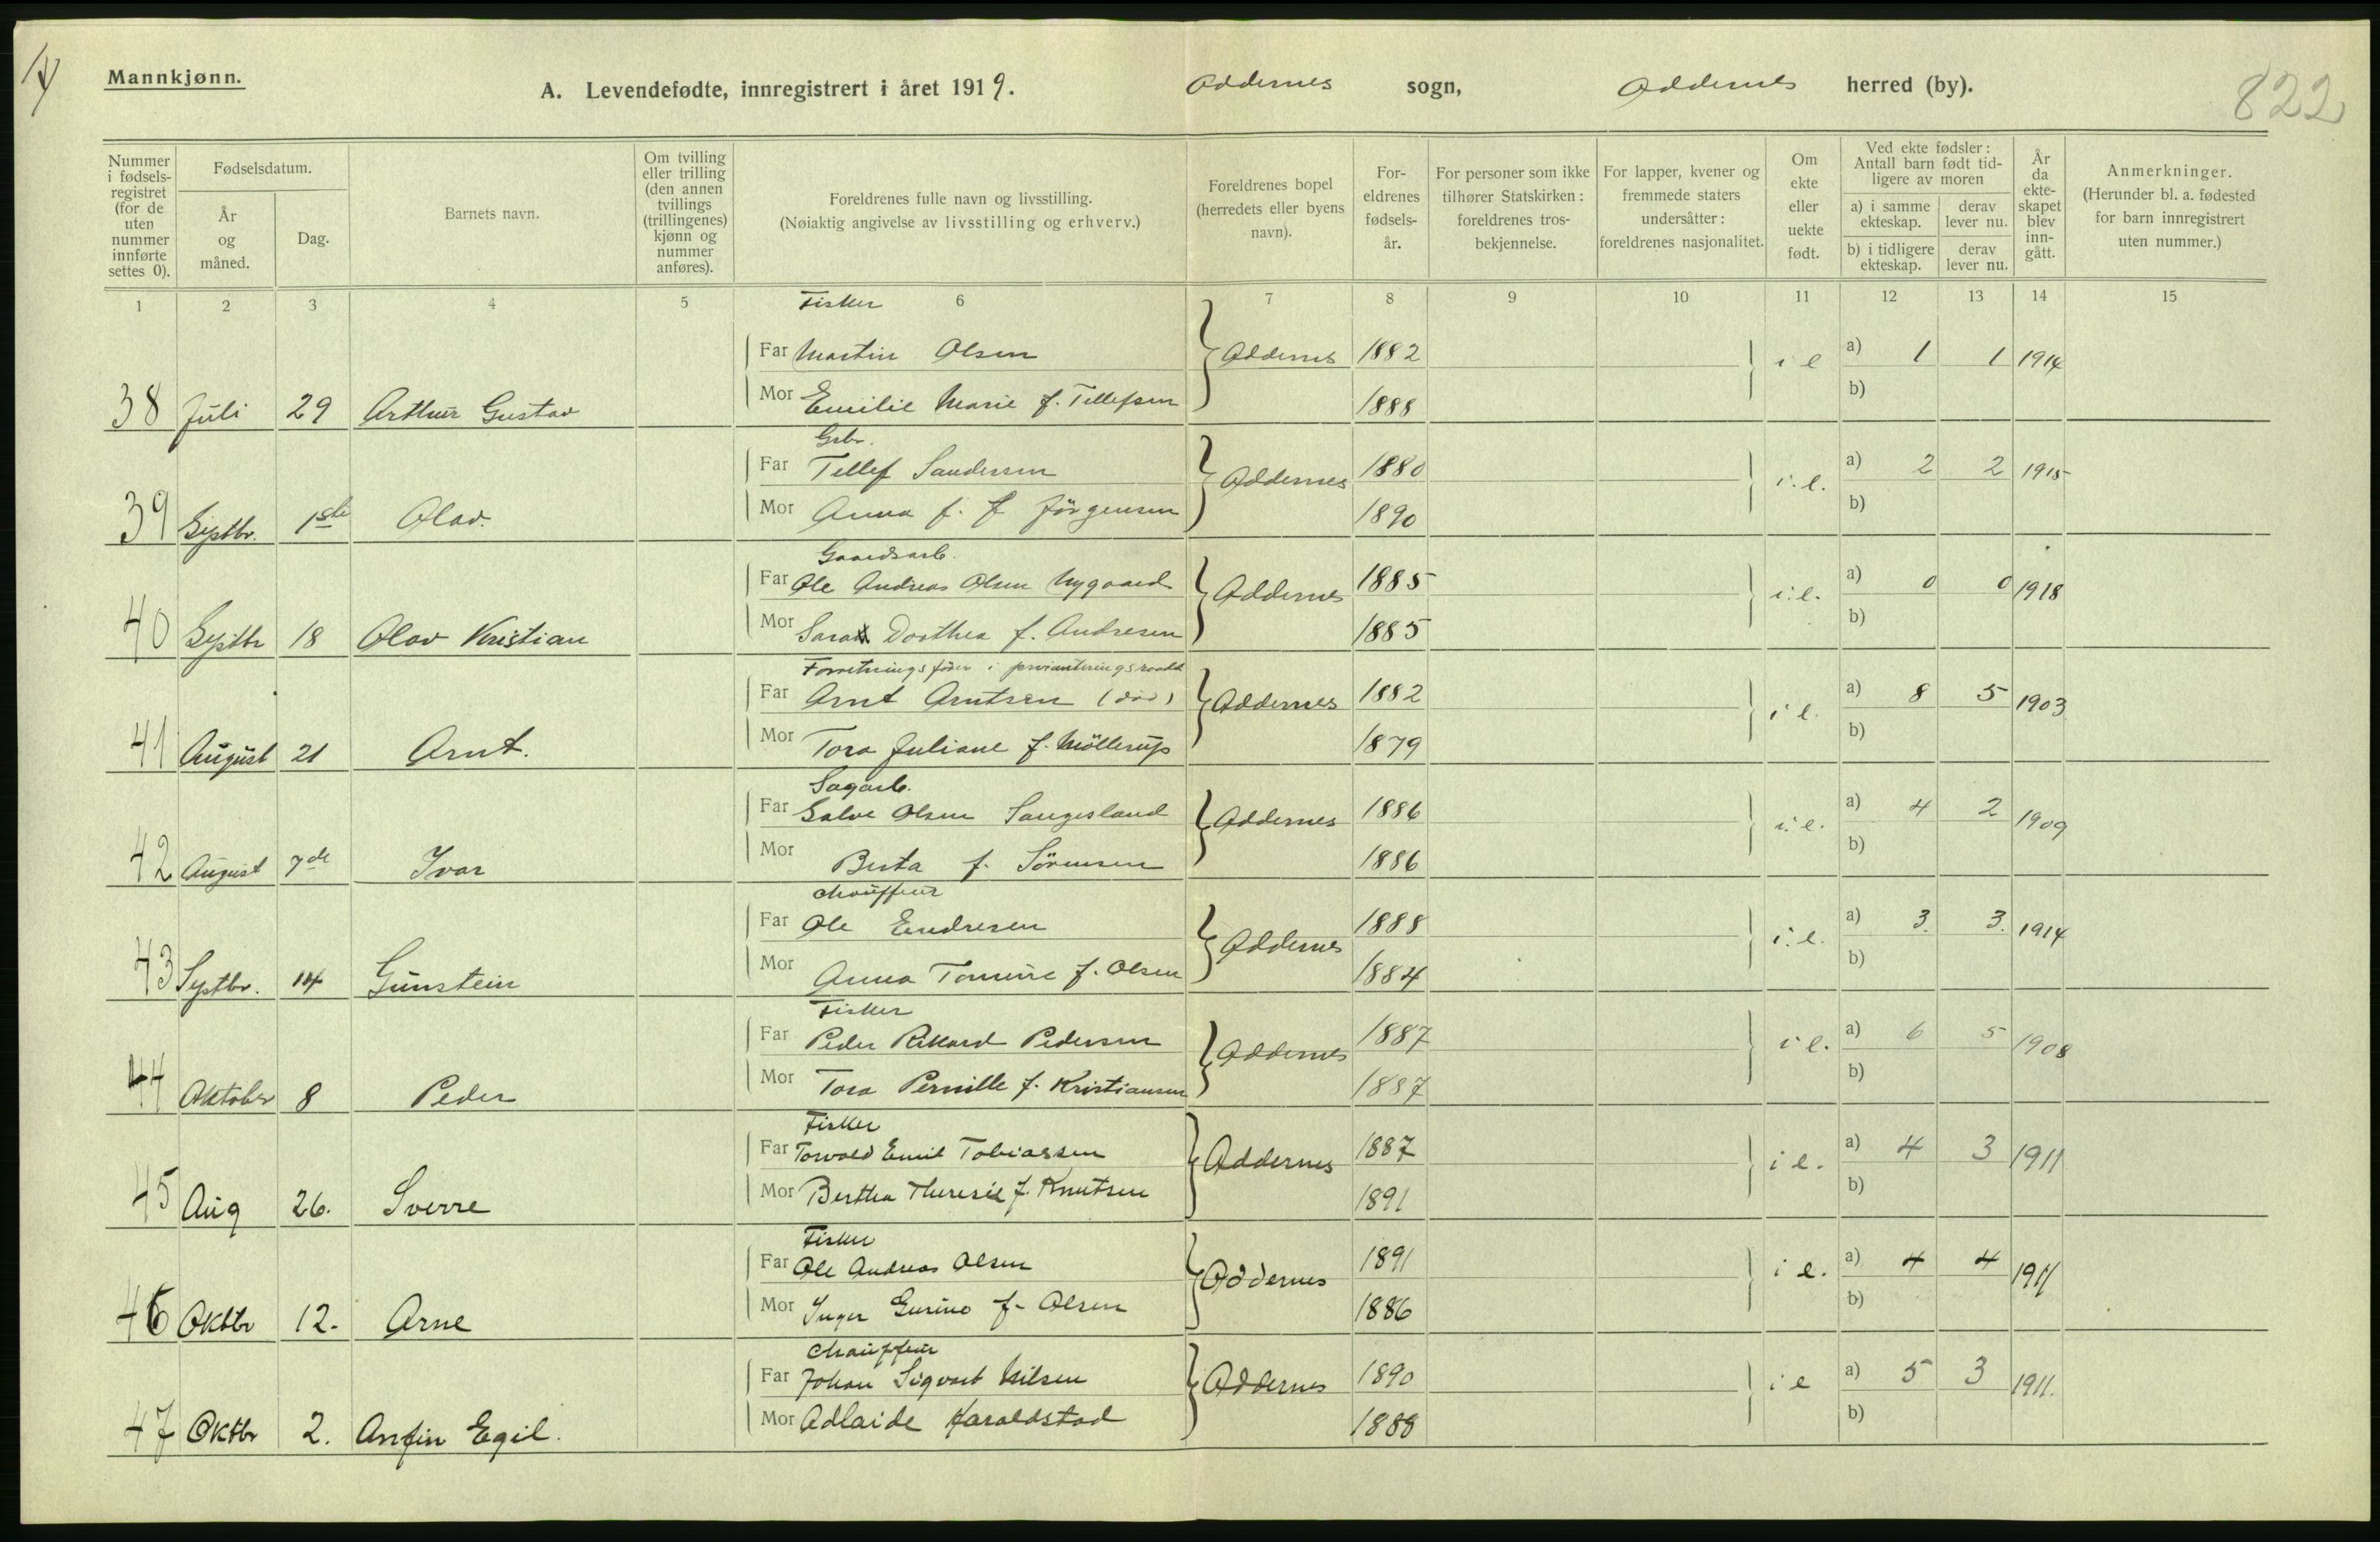 Mannkjønn.
A. Levendefødte, innregistrert i året 1919. Oddernes sogn, Oddernes herred (by).
822
Nummer i fødselsregistret (for de uten nummer innførte settes 0).
Fødselsdatum.
År og måned.
Dag.
Barnets navn.
Om tvilling eller trilling (den annen tvillings (trillingenes) kjønn og nummer anføres).
Foreldrenes fulle navn og livsstilling.
(Nøiaktig angivelse av livsstilling og erhverv.)
Foreldrenes bopel (herredets eller byens navn).
Foreldrenes fødselsår.
For personer som ikke tilhører Statskirken: foreldrenes trosbekjennelse.
For lapper, kvener og fremmede staters undersåtter: foreldrenes nasjonalitet.
Om ekte eller uekte født.
Ved ekte fødsler: Antall barn født tidligere av moren
a) i samme ekteskap.
derav lever nu.
b) i tidligere ekteskap.
derav lever nu.
År da ekteskapet blev inngått.
Anmerkninger.
(Herunder bl. a. fødested for barn innregistrert uten nummer.)
1 2 3 4 5 6 7 8 9 10 11 12 13 14 15
Fisker
Far Martin Olsen Oddernes 1882 i e a) 1 1 1914
38 Juli 29 Arthur Gustav Mor Emilie Marie f. Tellefsen 1888 b)
Gbr.
Far Tellef Sandersen Oddernes 1880 i.e. a) 2 2 1915
39 Septbr. 1ste Olav. Mor Anna f. f Jörgensen 1890 b)
Gaardsarb.
Far Ole Andreas Olsen Nygaard Oddernes 1885 i.e. a) 0 0 1918
40 Septbr 18 Olav Kristian Mor Sara Dorthea f. Andresen 1885 b)
Forretningsfører i provianteringsraadet
Far Arnt Arntsen (död) Oddernes 1882 i e. a) 8 5 1903
41 August 21 Arnt. Mor Tora Juliane f. Möllerup 1879 b)
Sagarb.
Far Salve Olsen Sangesland Oddernes 1886 i.e. a) 4 2 1909
42 August 7de Ivar Mor Berta f. Sörensen 1886 b)
Chauffeur
Far Ole Endresen Oddernes 1888 i.e. a) 3. 3. 1914
43 Septbr. 14 Gunstein Mor Anna Tomine f. Olsen 1884 b)
Fisker
Far Peder Rikard Pedersen Oddernes 1887 i e. a) 6 5 1908
44 Oktober 8 Peder Mor Tora Pernille f. Kristiansen 1887 b)
Fisker
Far Torvald Emil Tobiassen Oddernes 1887 i e. a) 4 3 1911
45 Aug 26. Sverre Mor Bertha Theresie f. Knutsen 1891 b)
Fisker
Far Ole Andreas Olsen Oddernes 1891 i e. a) 4 4 1911
46 Oktbr 12. Arne Mor Inger Gurine f. Olsen 1886 b)
Chauffeur
Far Johan Sigvart Nilsen Oddernes 1890 i e a) 5 3 1911.
47 Oktbr 2. Arnfin Egil. Mor Adlaide Haraldstad 1888 b)